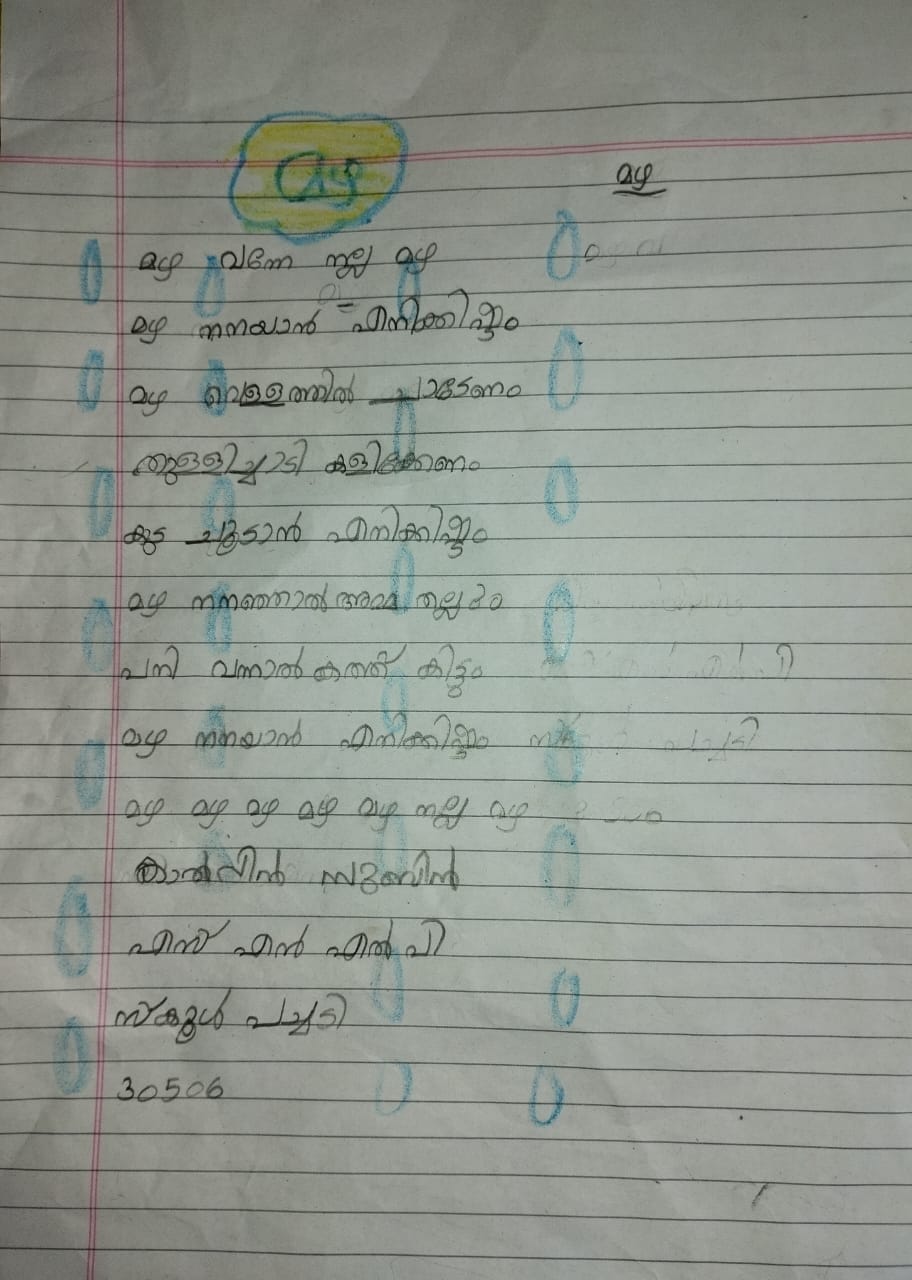 മഴ
മഴ
മഴ വന്നേ നല്ല മഴ
മഴ നനയാൻ എനിക്കിഷ്ടം
മഴ വെള്ളത്തിൽ ചാടേണം
തുള്ളിച്ചാടി കളിക്കേണം
കുട ചൂടാൻ എനിക്കിഷ്ടം
മഴ നനഞ്ഞാൽ അമ്മ തല്ലും
പനി വന്നാൽ കുത്ത് കിട്ടും
മഴ നനയാൻ എനിക്കിഷ്ടം
മഴ മഴ മഴ മഴ മഴ നല്ല മഴ
എസ് എൻ എൽ പി
സ്കൂൾ പച്ചടി
30506